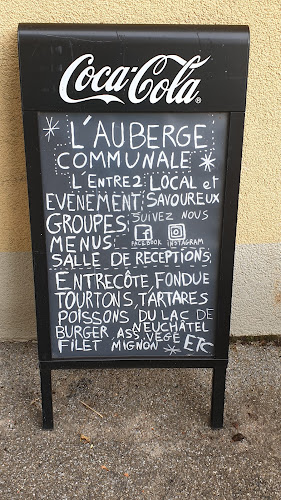 Coca-Cola
L'AUBERGE
COMMUNALE
L'ENTRE2 LOCAL et
EVENEMENT SAVOUREUX
GROUPES SUIVEZ NOUS
MENUS FACEBOOK INSTAGRAM
SALLE DE RECEPTIONS
ENTRECÔTE, FONDUE
TOURTONS, TARTARES
POISSONS DU LAC DE
BURGER ASS. VEGE NEUCHÂTEL
FILET MIGNON ETC